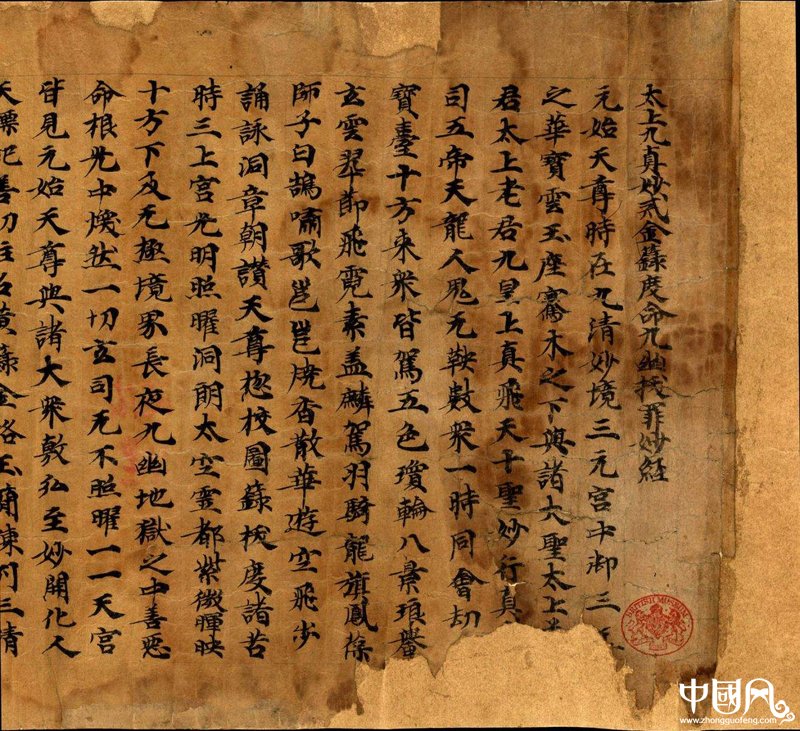 太上九真妙戒金籙度命九幽拔罪妙経
元始天尊時在九清妙境三元宮中御三
之華寶雲玉座騫木之下與諸大聖太上
君太上老君九皇上真飛天十聖妙行真
司五帝天龍人鬼无鞅數衆一時同會劫
寶臺十方来衆皆駕五色瓊輪八景琅轝
玄雲翠節飛霓素盖麟駕羽騎龍旗鳳葆
師子白鵠嘯歌邕邕燒香散華遊空飛步
誦詠洞章朝讃天尊揔校圖籙拔度諸苦
時三上宮光明照曜洞朗太空靈都紫微暉映
十方下及无極境界長夜九幽地獄之中善惡
命根光中煥然一切玄司无不照曜一一天宮
皆見元始天尊與諸大衆敷弘至妙開化人
天
BRITISH MUSEUM
中國风
www.zhongguofeng.com